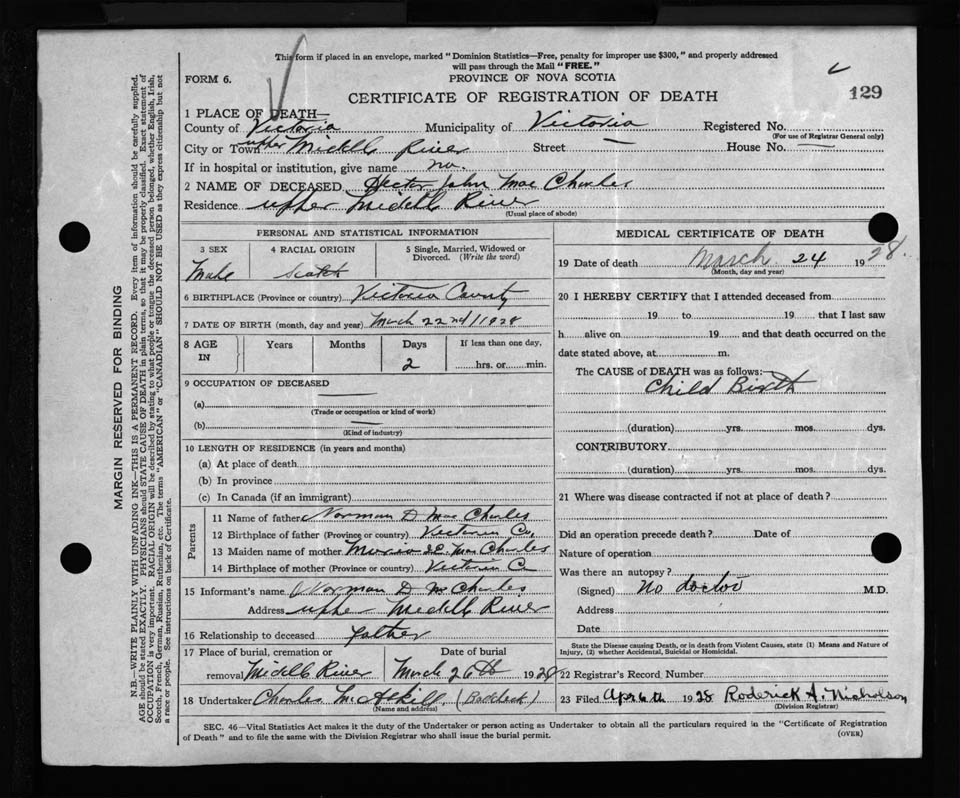 This form if placed in an envelope, marked " Dominion Statistics—Free, penalty for improper use $300, " and properly addressed
will pass through the Mail " FREE. "
FORM 6. PROVINCE OF NOVA SCOTIA
CERTIFICATE OF REGISTRATION OF DEATH 129
1 PLACE OF DEATH—
County of Victoria Municipality of Victoria Registered No.
(For use of Registrar General only)
City or Town upper Middle River Street — House No. —
If in hospital or institution, give name no
2 NAME OF DECEASED Hector John Mac Charles
Residence upper Middle River
(Usual place of abode)
PERSONAL AND STATISTICAL INFORMATION
3 SEX 4 RACIAL ORIGIN 5 Single, Married, Widowed or
Divorced. (Write the word)
Male Scotch
6 BIRTHPLACE (Province or country) Victoria County
7 DATE OF BIRTH (month, day and year) March 22nd / 1928
8 AGE IN Years Months Days If less than one day,
2 hrs. or min.
9 OCCUPATION OF DECEASED
(a) —
(Trade or occupation or kind of work)
(b) —
(Kind of industry)
10 LENGTH OF RESIDENCE (in years and months)
(a) At place of death
(b) In province
(c) In Canada (if an immigrant)
Parents
11 Name of father Norman D Mac Charles
12 Birthplace of father (Province or country) Victoria Co,
13 Maiden name of mother Mac Charles
14 Birthplace of mother (Province or country) Victoria C
15 Informant's name Norman D Mc Charles
Address upper Middle River
16 Relationship to deceased father
17 Place of burial, cremation or Date of burial
removal Middle River March 26th 1928
18 Undertaker Charles McAskill (Baddeck)
(Name and address)
MEDICAL CERTIFICATE OF DEATH
19 Date of death March 24 1928.
(Month, day and year)
20 I HEREBY CERTIFY that I attended deceased from
19 to 19 that I last saw
h alive on 19 and that death occurred on the
date stated above, at m.
The CAUSE of DEATH was as follows:—
Child Birth
(duration) yrs. mos. dys.
CONTRIBUTORY.
(duration) yrs. mos. dys.
21 Where was disease contracted if not at place of death?
Did an operation precede death? Date of
Nature of operation
Was there an autopsy?
(Signed) No doctor M.D.
Address
Date
State the Disease causing Death, or in death from Violent Causes, state (1) Means and Nature of
Injury, (2) whether Accidental, Suicidal or Homicidal.
22 Registrar's Record Number
23 Filed Apr 6th 1928 Roderick A. Nicholson
(Division Registrar)
SEC. 46—Vital Statistics Act makes it the duty of the Undertaker or person acting as Undertaker to obtain all the particulars required in the "Certificate of Registration
of Death" and to file the same with the Division Registrar who shall issue the burial permit. (OVER)
MARGIN RESERVED FOR BINDING
N.B.—WRITE PLAINLY WITH UNFADING INK—THIS IS A PERMANENT RECORD. Every item of information should be carefully supplied.
AGE should be stated EXACTLY. PHYSICIANS should STATE CAUSE OF DEATH in plain terms, so that it may be properly classified. Exact statement of
OCCUPATION is very important. RACIAL ORIGIN will be described by stating to what people or tongue the deceased person belonged, whether English, Irish,
Scotch, French, German, Russian, Ruthenian, etc. The terms "AMERICAN" or "CANADIAN" SHOULD NOT BE USED as they express citizenship but not
a race or people. See instructions on back of Certificate.